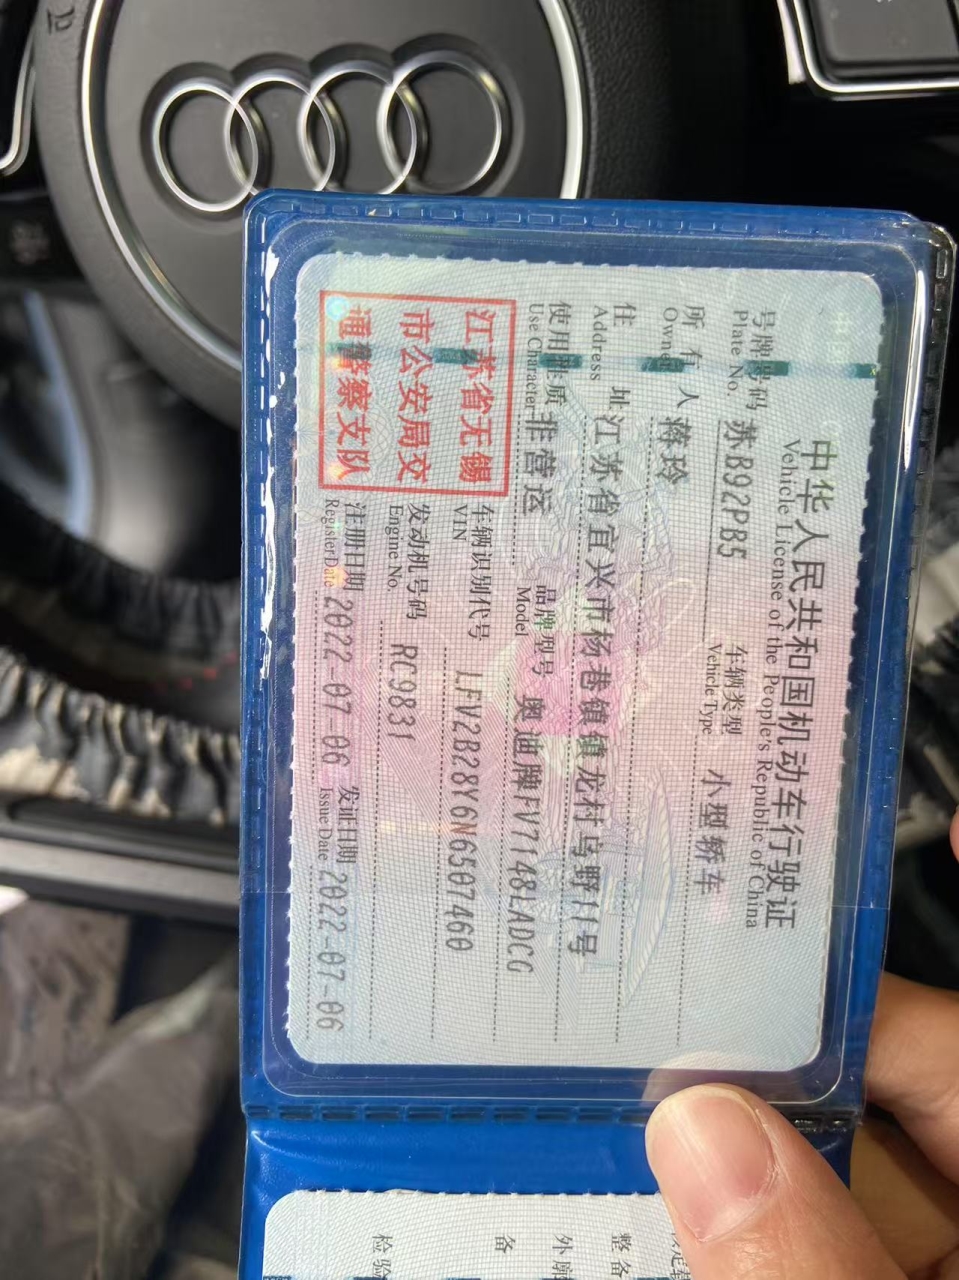 中华人民共和国机动车行驶证
Vehicle License of the People's Republic of China
号牌号码 苏B92PB5 车辆类型 小型轿车
Plate No. Vehicle Type
所有人 蒋玲
Owner
住址 江苏省宜兴市杨巷镇镇龙村马野11号
Address
使用性质 非营运 品牌型号 奥迪牌FV7148LADCG
Use Character Model
江苏省无锡
市公安局交
通警察支队
车辆识别代号 LFV2B28Y6N6507460
VIN
发动机号码 RC9831
Engine No.
注册日期 2022-07-06 发证日期 2022-07-06
Register Date Issue Date
整备
外廓
备
检验